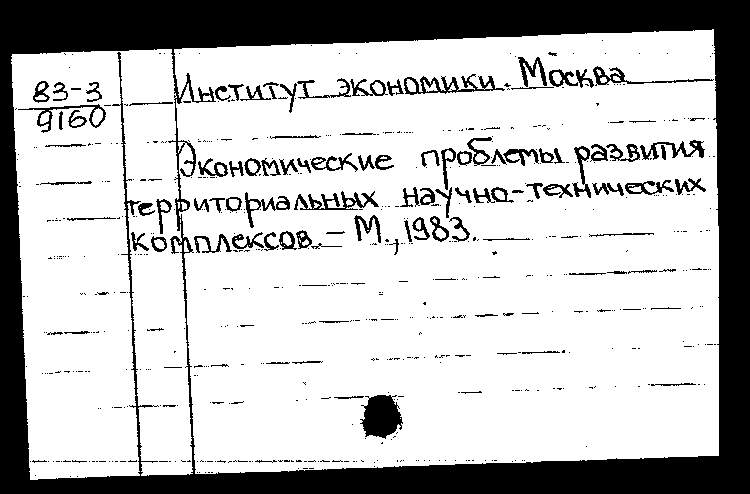 83-3
9160
Институт экономики. Москва
Экономические проблемы развития
территориальных научно-технических
комплексов. – М., 1983.